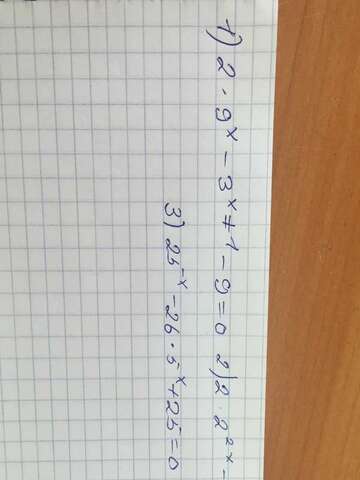 1) 2 · 9^x − 3^x+1 − 9 = 0 2) 2 · 2^2x −
3) 25^−x − 26 · 5^−x + 25 = 0